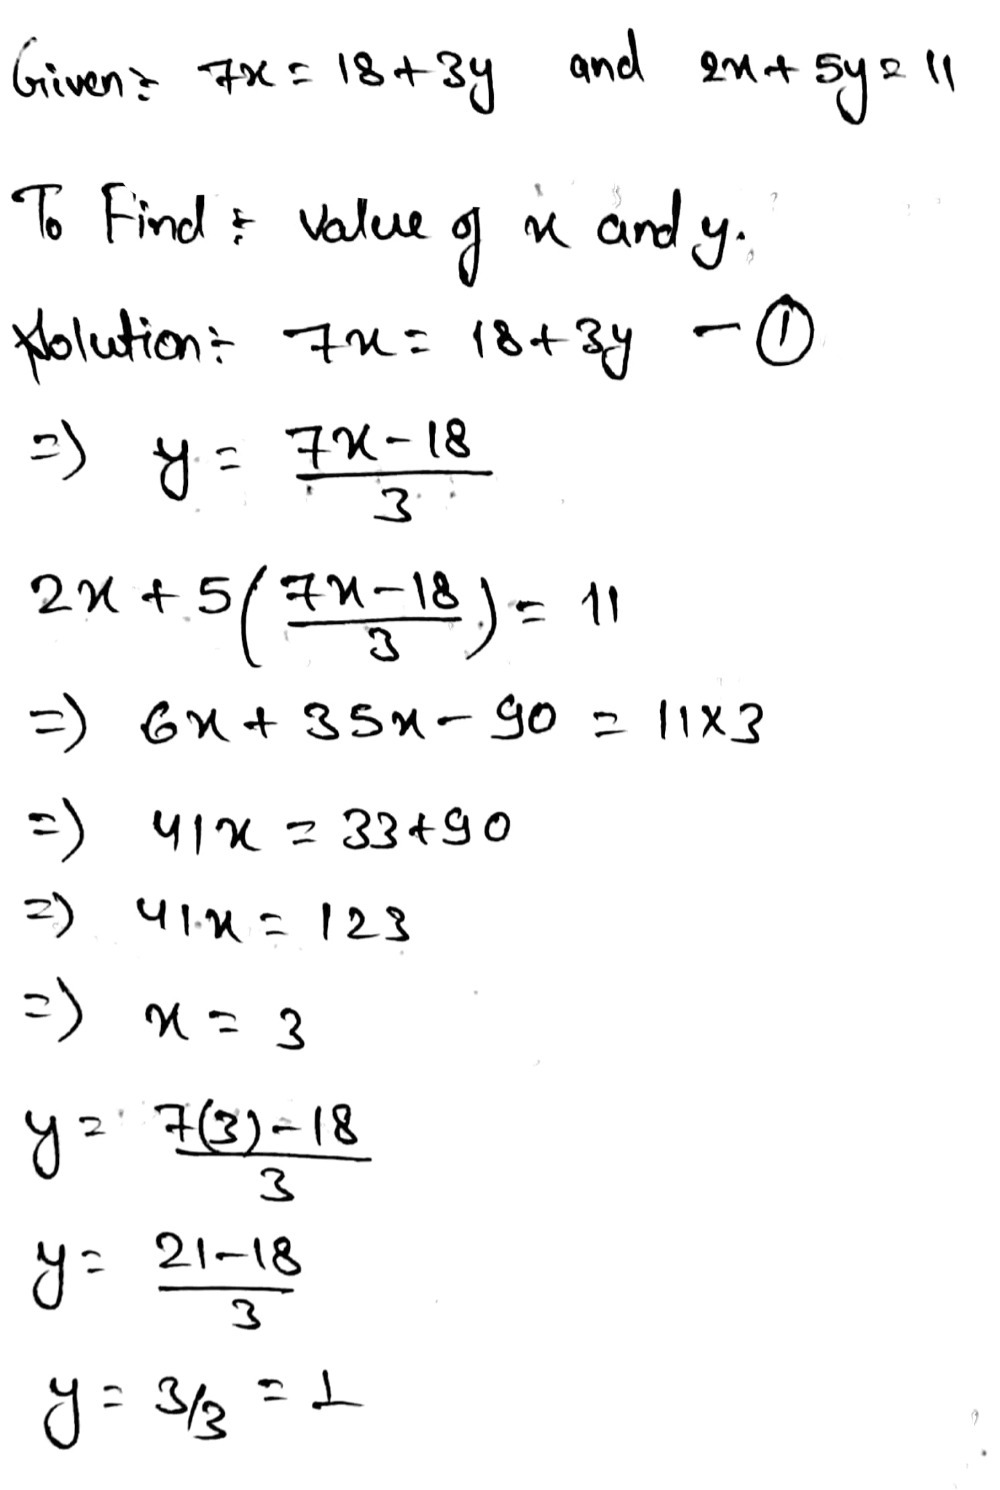 Given:- 7x = 18 + 3y and 2x + 5y = 11
To Find :- Value of x and y.
Solution:- 7x = 18 + 3y - ①
=) y = 7x - 18 / 3
2x + 5 ( 7x - 18 / 3 ) = 11
=) 6x + 35x - 90 = 11 x 3
=) 41x = 33 + 90
=) 41x = 123
=) x = 3
y = 7(3) - 18 / 3
y = 21 - 18 / 3
y = 3/3 = 1